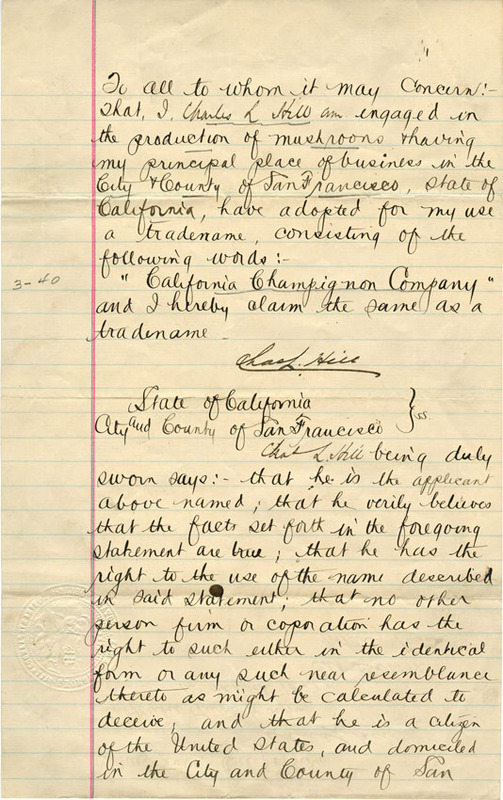 To all to whom it may Concern:-
That, I, Charles L Hill am engaged in
the production of mushrooms & having
my principal place of business in the
City & County of San Francisco, State of
California, have adopted for my use
a tradename, consisting of the
following words:-
" California Champignon Company "
and I hereby claim the same as a
tradename
3-40
Chas L. Hill
State of California
City and County of San Francisco } ss.
Chas L. Hill being duly
sworn says:- that he is the applicant
above named; that he verily believes
that the facts set forth in the foregoing
statement are true; that he has the
right to the use of the name described
in said statement; that no other
person firm or coporation has the
right to such either in the identical
form or any such near resemblance
thereto as might be calculated to
deceive, and that he is a citizen
of the United States, and domiciled
in the City and County of San